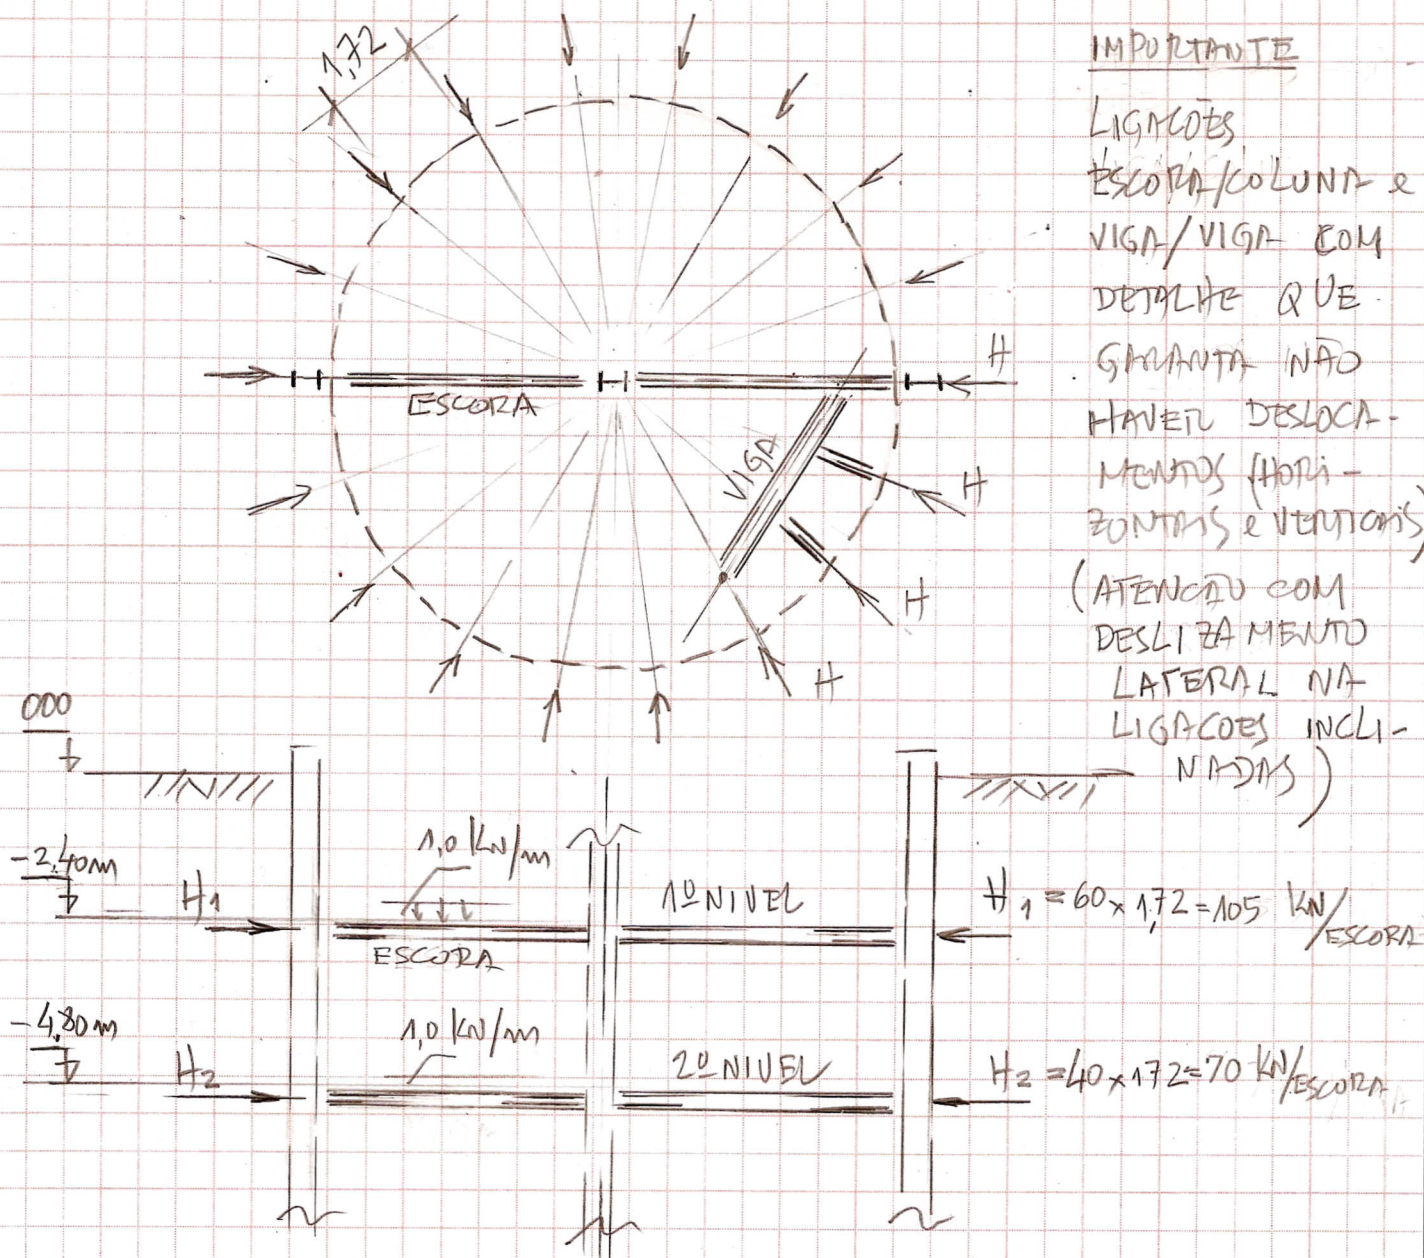 1,72
IMPORTANTE
LIGACÕES
ESCORA/COLUNA e
VIGA/VIGA COM
DETALHE QUE
GARANTA NÃO
HAVER DESLOCA-
MENTOS (HORI-
ZONTAIS e VERTICAIS)
(ATENCÃO COM
DESLIZAMENTO
LATERAL NA
LIGACOES INCLI-
NADAS)
H
ESCORA
VIGA
H
H
H
000
-2,40m
H1
1,0 KN/m
ESCORA
1º NIVEL
H1 = 60 x 1,72 = 105 KN/ESCORA
-4,80m
H2
1,0 KN/m
2º NIVEL
H2 = 40 x 172 = 70 KN/ESCORA